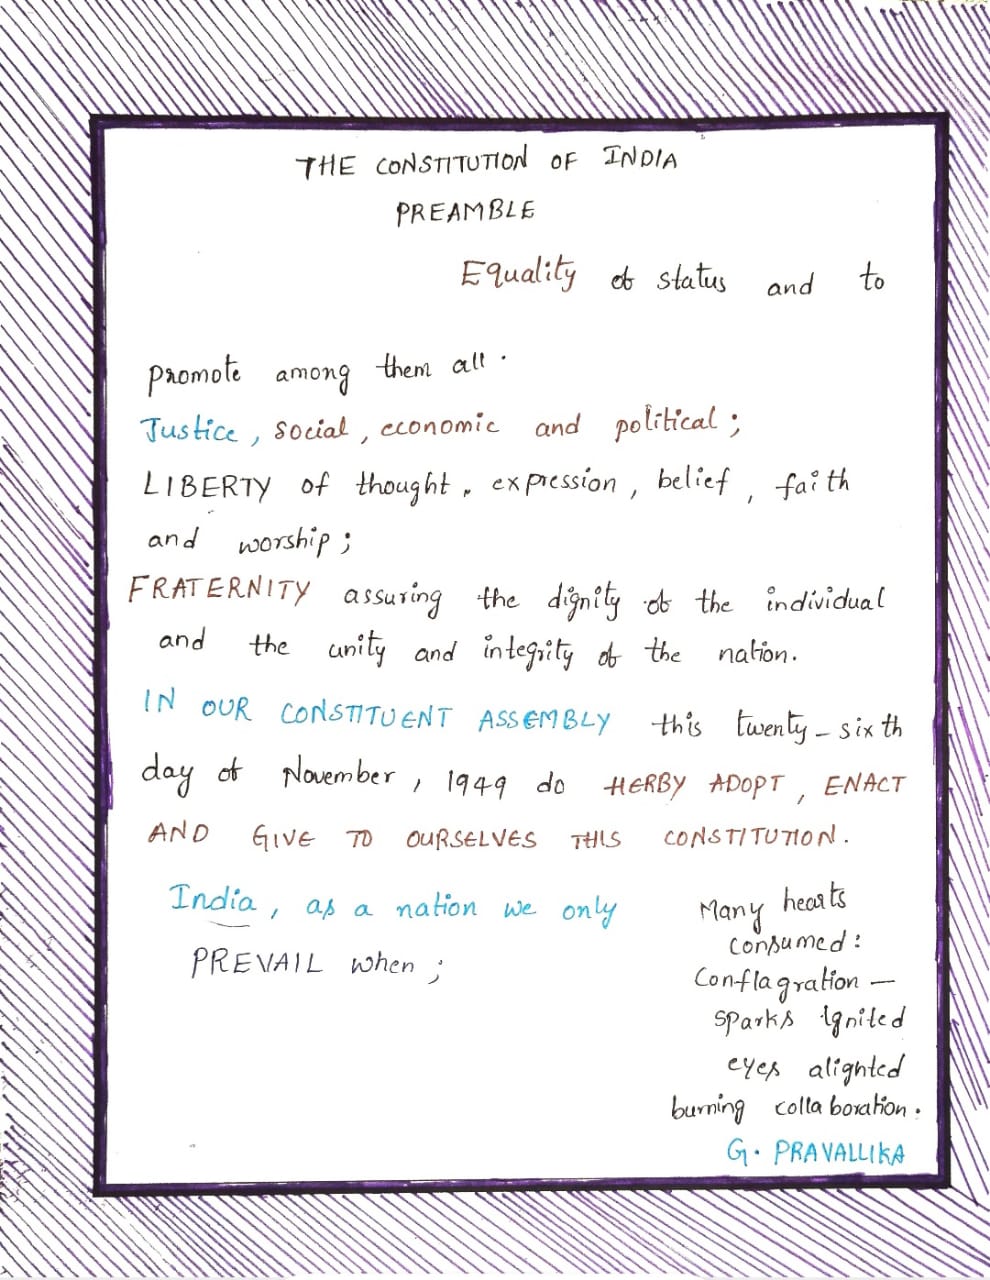 THE CONSTITUTION OF INDIA
PREAMBLE
Equality of status and to
promote among them all.
Justice, social, economic and political;
LIBERTY of thought, expression, belief, faith
and worship;
FRATERNITY assuring the dignity of the individual
and the unity and integrity of the nation.
IN OUR CONSTITUENT ASSEMBLY this twenty-sixth
day of November, 1949 do HERBY ADOPT, ENACT
AND GIVE TO OURSELVES THIS CONSTITUTION.
India, as a nation we only
PREVAIL when;
Many hearts
consumed:
Conflagration —
sparks ignited
eyes alighted
burning collaboration.
G. PRAVALLIKA